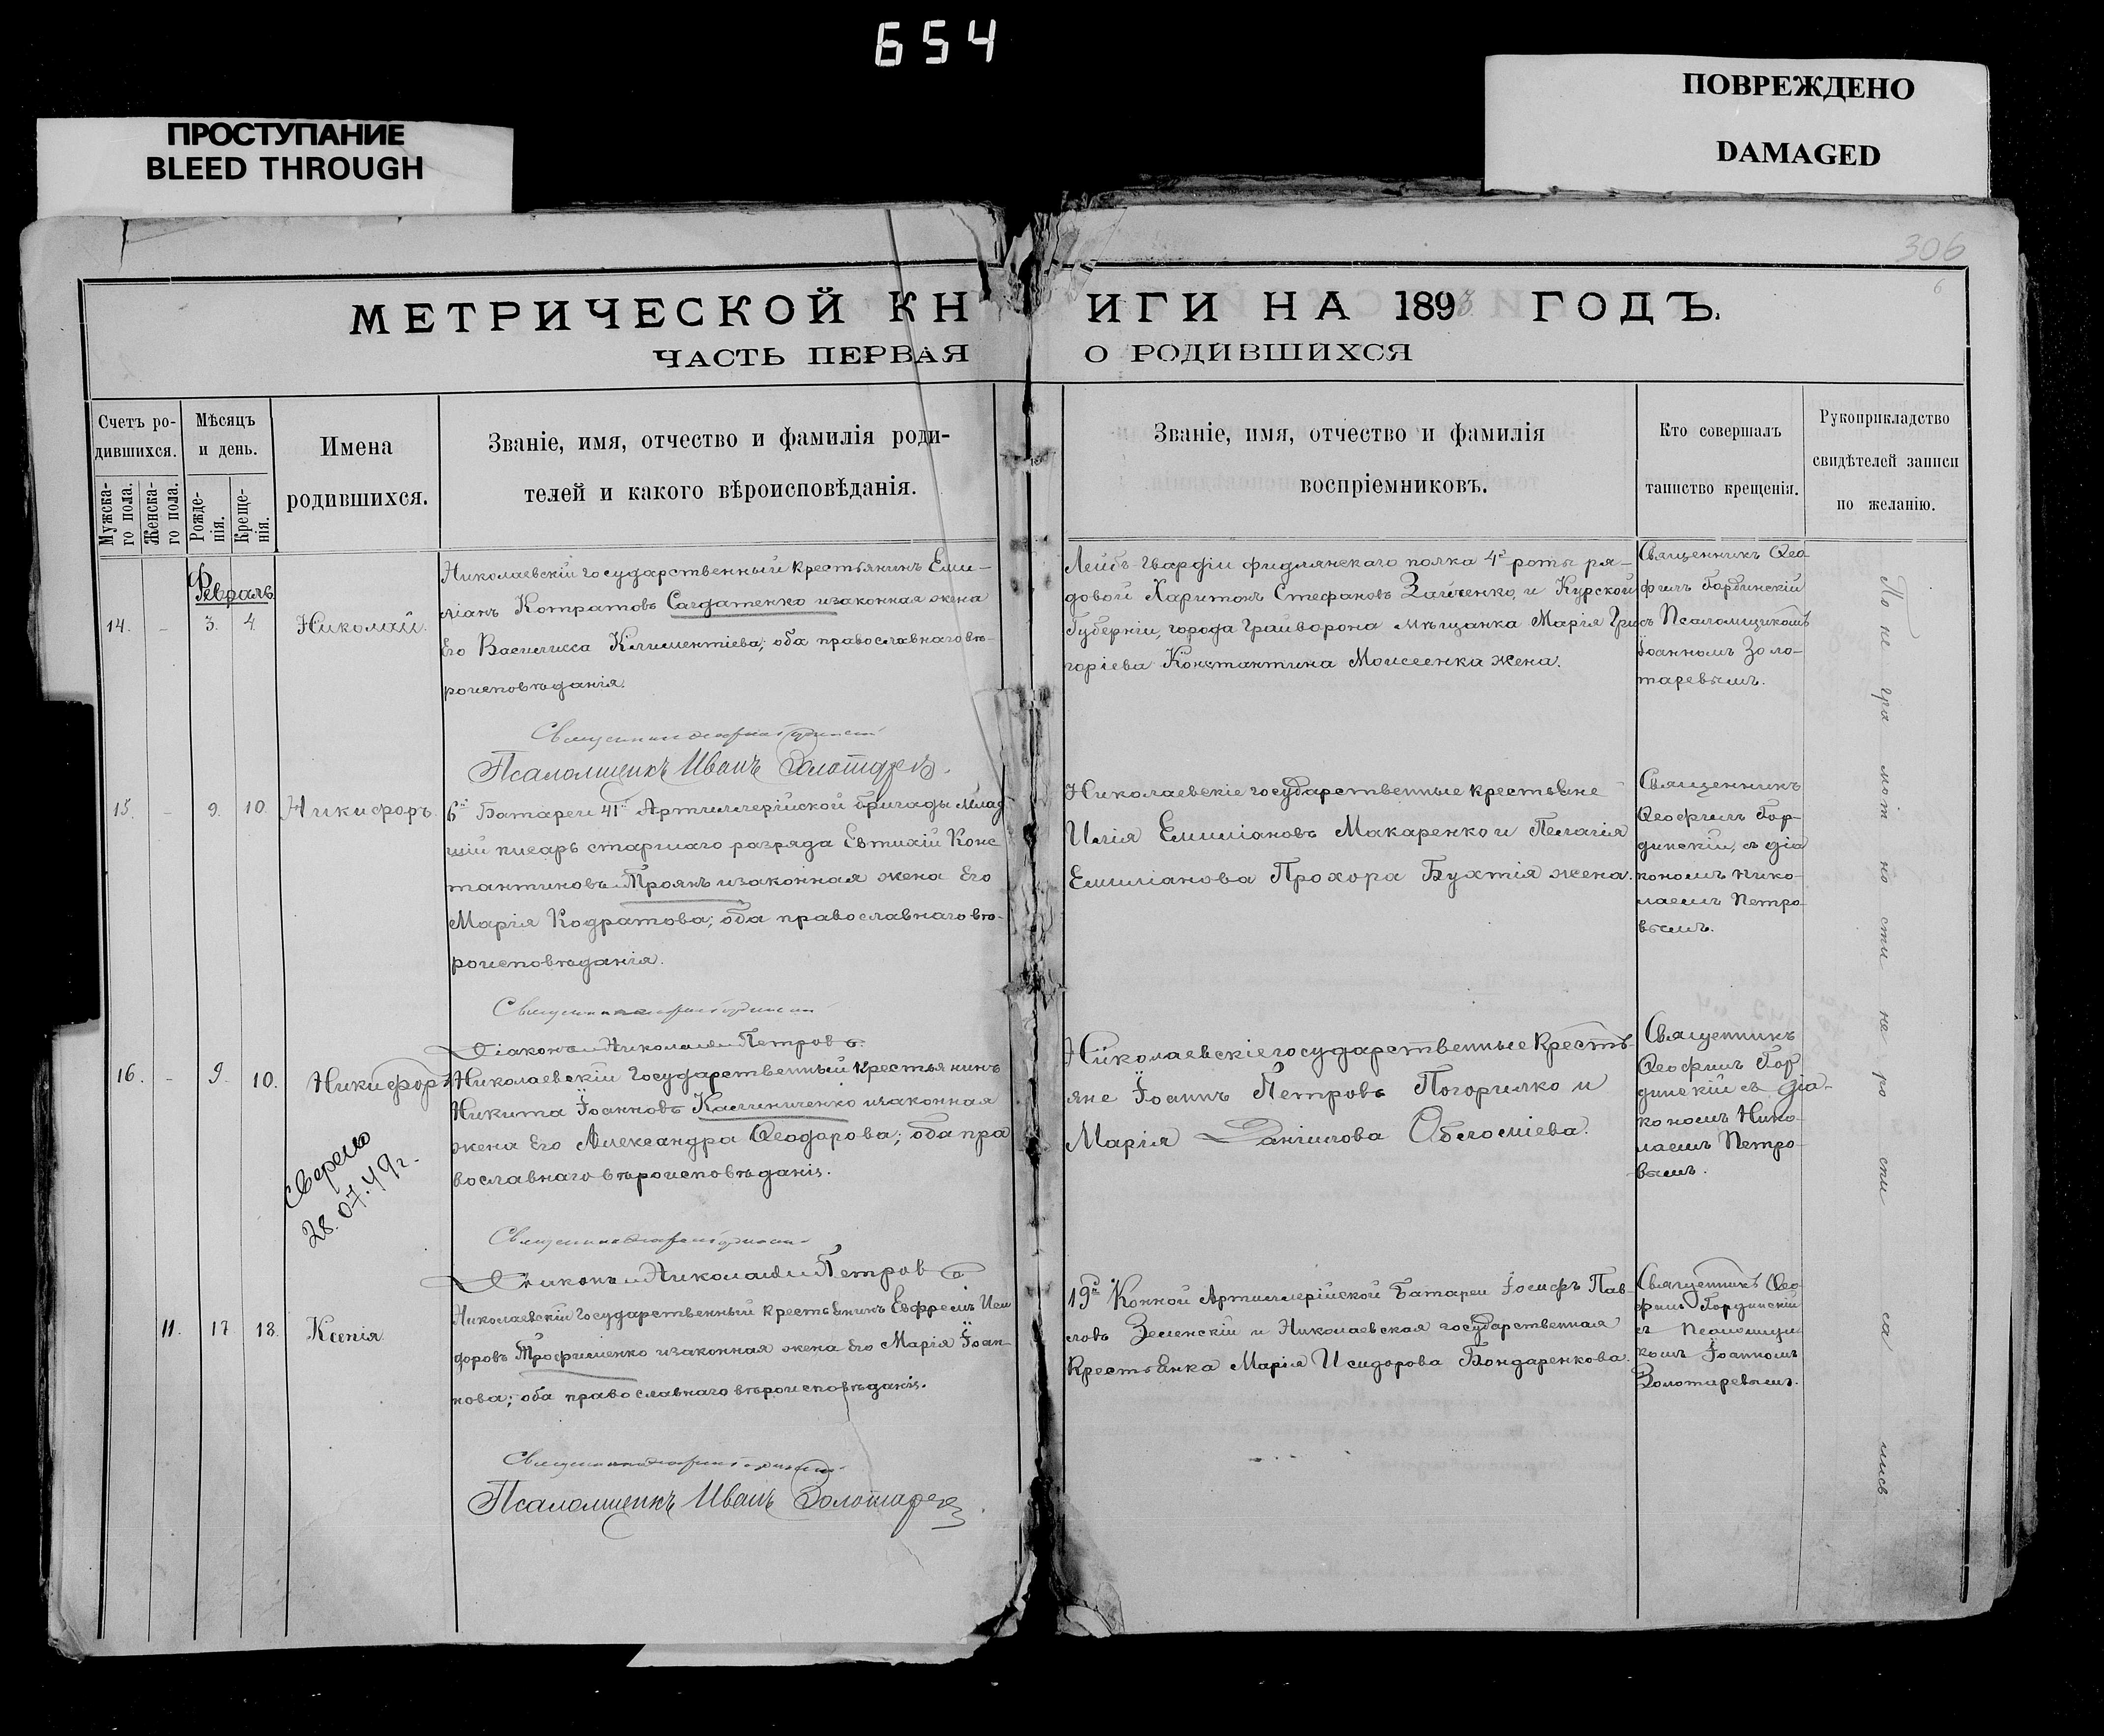 654
ПРОСТУПАНИЕ
BLEED THROUGH
ПОВРЕЖДЕНО
DAMAGED
306
6
МЕТРИЧЕСКОЙ КНИГИ НА 1893 ГОДЪ.
ЧАСТЬ ПЕРВАЯ О РОДИВШИХСЯ
Счетъ ро-
дившихся.
Мужска-
го пола.
Женска-
го пола.
Мѣсяцъ
и день.
Рожде-
нія.
Креще-
нія.
Имена
родившихся.
Званіе, имя, отчество и фамилія роди-
телей и какого вѣроисповѣданія.
Званіе, имя, отчество и фамилія
воспріемниковъ.
Кто совершалъ
таинство крещенія.
Рукоприкладство
свидѣтелей записи
по желанію.
Февраль
14. - 3. 4. Николай.
Николаевскій государственный крестьянинъ Еми-
ліанъ Котратовъ Сагдатенко и законная жена
Его Василисса Климентіева; оба православнаго вѣ-
роисповѣданія.
Священник
Псаломщикъ Иванъ Золотарев.
Лейбъ-Гвардіи фидлянскаго полка 4й роты ря-
довой Харитонъ Стефановъ Зайченко, и Курской
Губерніи, города Грайворона мѣщанка Марія Гри
горіева Константина Моисеенка жена.
Священникъ Ѳео
филъ Гординскій
съ Псаломщикомъ
Іоанномъ Золо-
таревымъ.
15. - 9. 10. Никифоръ.
6й Батареи 41й Артиллерійской бригады Млад
шій писарь старшаго разряда Евтихій Конс
тантиновъ Троянъ и законная жена Его
Марія Кодратова; оба православнаго вѣ-
роисповѣданія.
Священник
Діаконъ Николай Петровъ.
Николаевскіе государственные крестьяне
Илія Емиліановъ Макаренко и Пелагія
Емиліанова Прохора Бухтія жена.
Священникъ
Ѳеофилъ Гор-
динскій, съ діа
кономъ Нико-
лаемъ Петро-
вымъ.
16. - 9. 10. Никифоръ
Николаевскій Государственный крестьянинъ
Никита Іоанновъ Калиниченко и законная
жена Его Александра Ѳеодорова; оба пра
вославнаго вѣроисповѣданія.
Сверено
28.07.49г.
Священник
Діаконъ Николай Петровъ
Николаевскіе государственные Кресть-
яне Іоаннъ Петровъ Погорилко и
Марія Даніилова
Священникъ
Ѳеофилъ Гор
динскій съ Діа-
кономъ Нико-
лаемъ Петро-
вымъ.
11. 17 18. Ксенія
Николаевскій Государственный крестьянинъ Евфремъ Иси
доровъ Трофименко и законная жена Его Марія Іоан-
нова; оба православнаго вѣроисповѣданія.
Священник
Псаломщикъ Иванъ Золотарев
19й Конной Артиллерійской Батареи Іосифъ Пав-
ловъ Зеленскій и Николаевская государственная
крестьянка Марія Исидорова Бондаренкова.
Священникъ Ѳео-
филъ Гординскій
съ Псаломщи-
комъ Іоанномъ
Золотаревымъ.
По не гра мот но сти не ро спи са лись